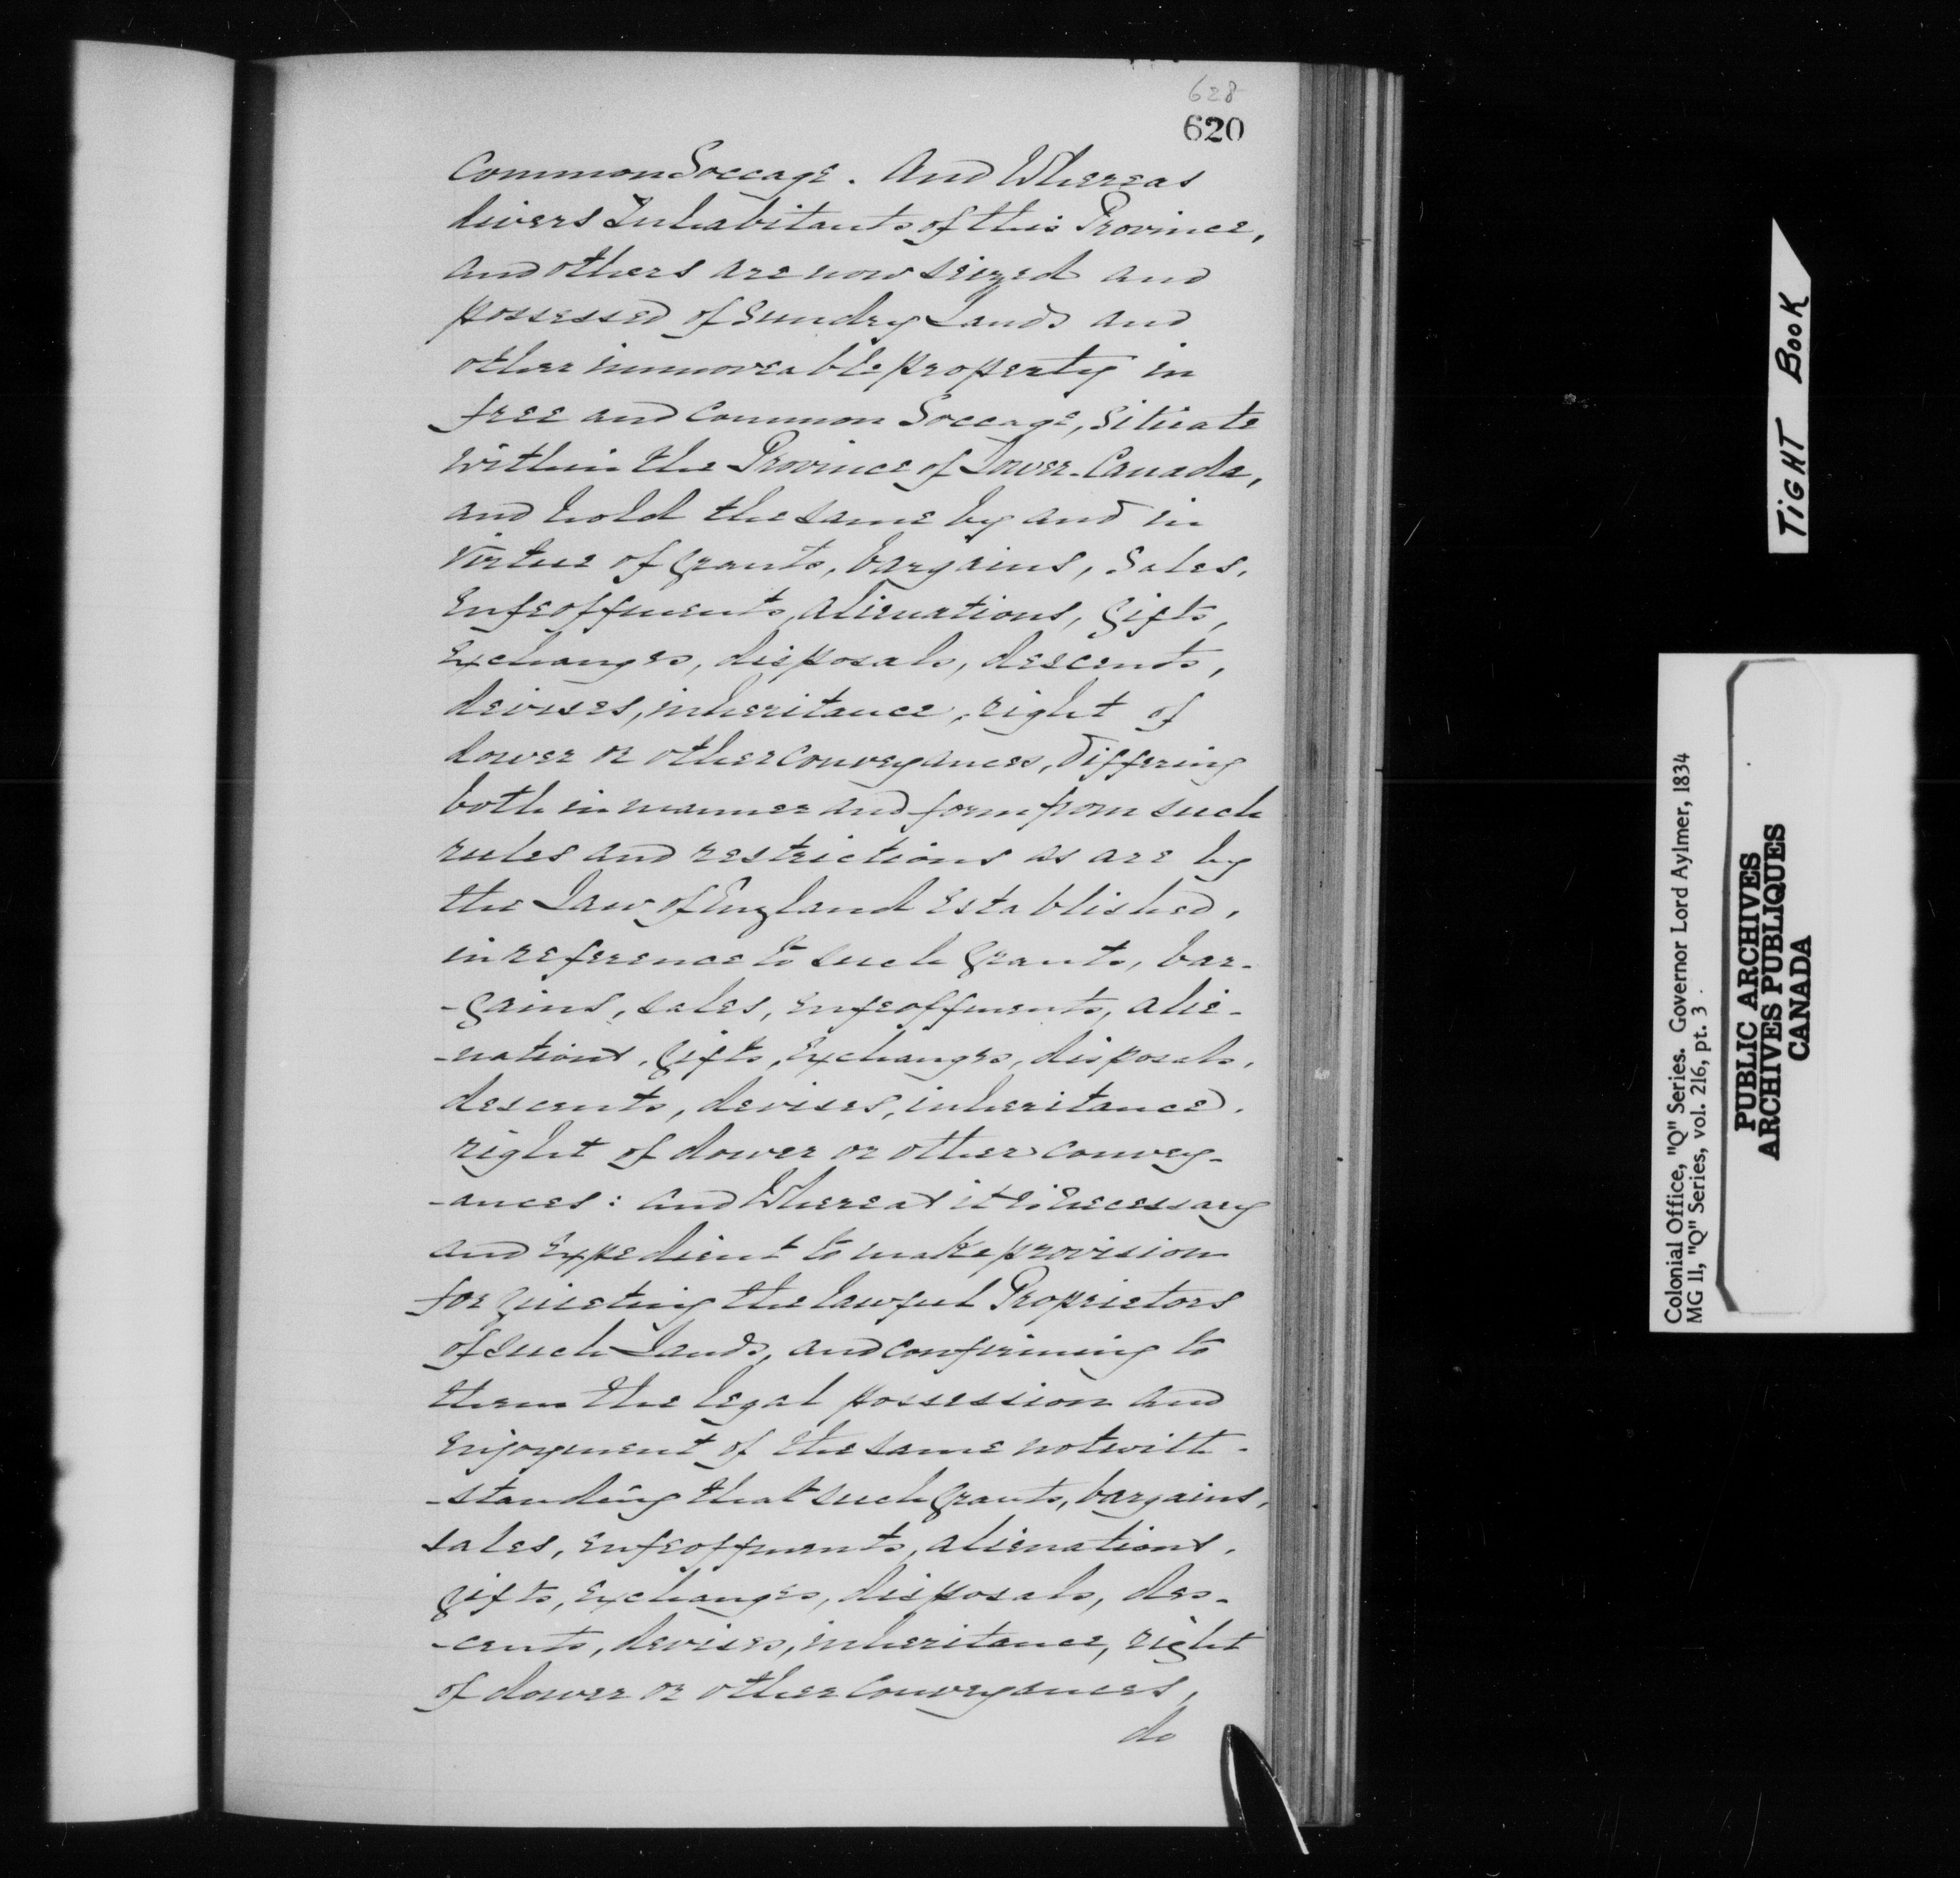 628
620
Common Soccage. And Whereas
divers Inhabitants of this Province,
and others are now seized and
possessed of Sundry Lands and
other immoveable property in
free and Common Soccage, Situate
within the Province of Lower-Canada,
and hold the same by and in
virtue of grants, bargains, Sales,
Enfeoffments, alienations, gifts,
Exchanges, disposals, descents,
devises, inheritance, right of
dower or other Conveyances, differing
both in manner and form from such
rules and restrictions as are by
the Law of England Established,
in reference to such grants, bar-
-gains, sales, enfeoffments, alie-
-nations, gifts, Exchanges, disposals,
descents, devises, inheritance,
right of dower or other convey-
-ances: and Whereas it is necessary
and Expedient to make provision
for quieting the lawful Proprietors
of such Lands, and confirming to
them the legal possession and
Enjoyment of the same notwith-
-standing that such grants, bargains,
sales, enfeoffments, alienations,
gifts, Exchanges, disposals, des-
-cents, devises, inheritance, right
of dower or other conveyances,
do
TIGHT BOOK
Colonial Office, "Q" Series. Governor Lord Aylmer, 1834
MG 11, "Q" Series, vol. 216, pt. 3
PUBLIC ARCHIVES
ARCHIVES PUBLIQUES
CANADA